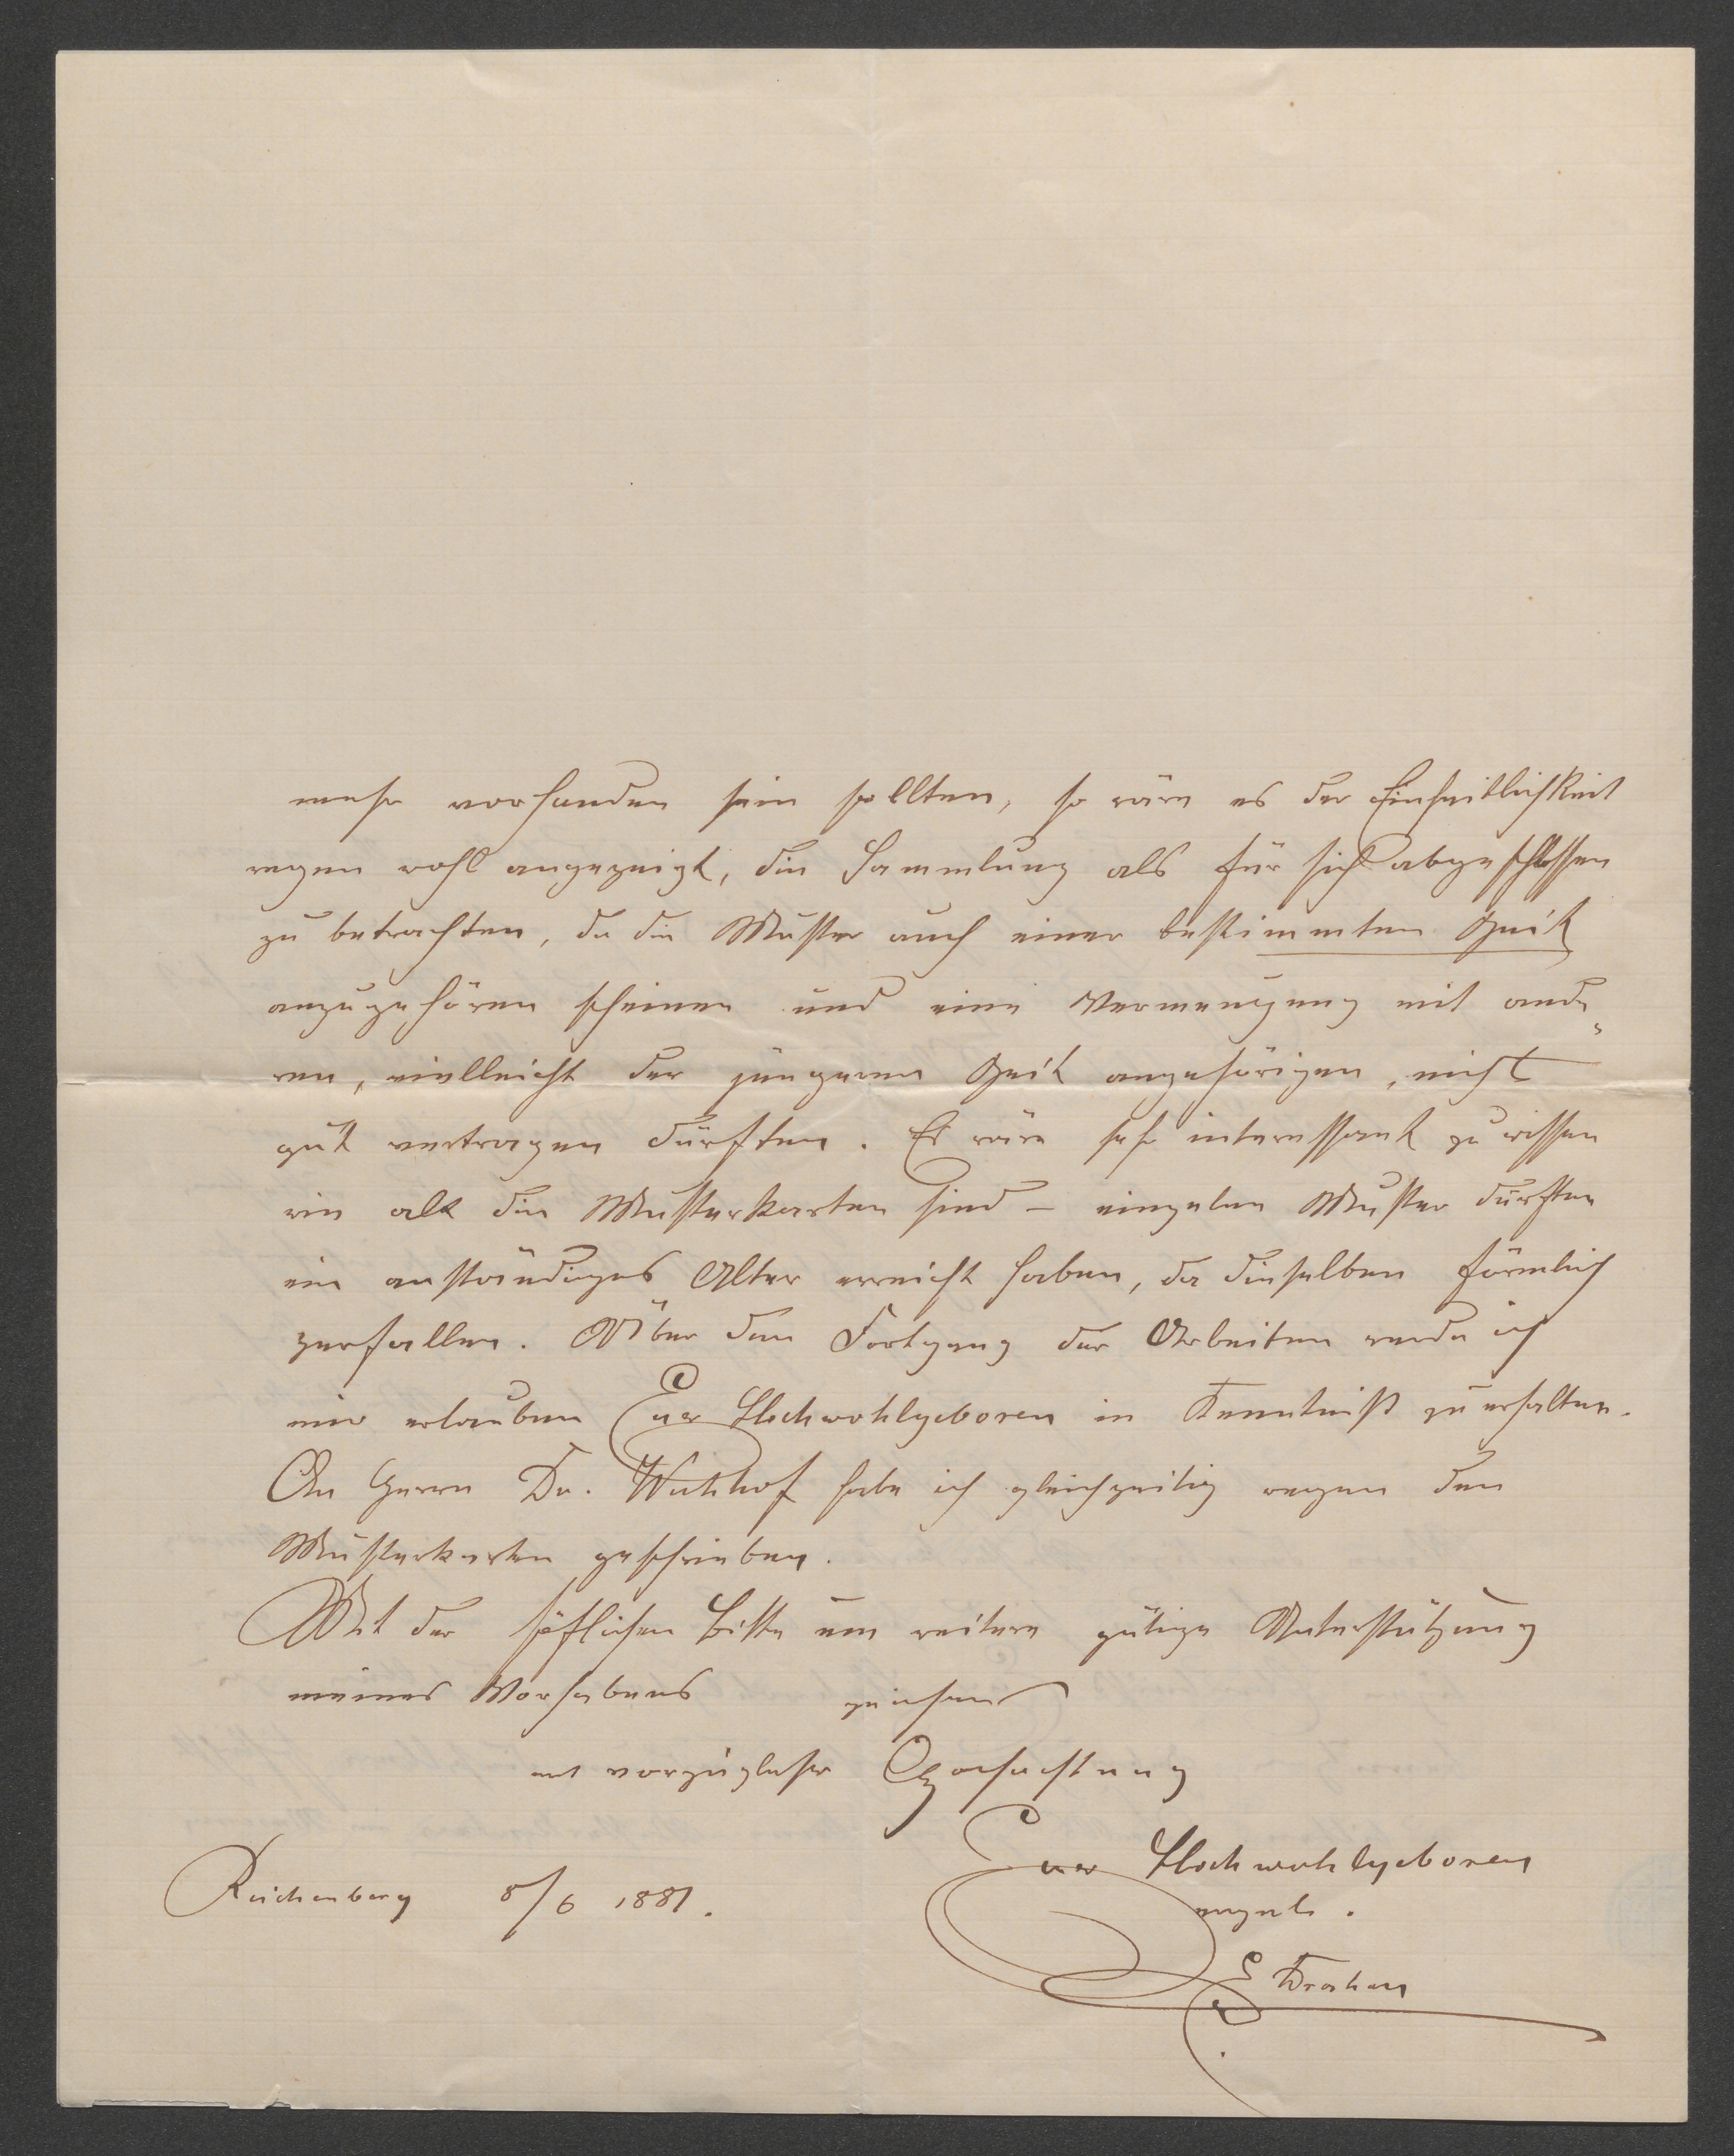 mehr vorhanden sein sollten, so wäre es der Einheitlichkeit
wegen wohl angezeigt, die Sammlung als für sich abgeschlossen
zu betrachten, da die Muster auch einer bestimmten Zeit
anzugehören scheinen und eine Vermengung mit ande„
ren, vielleicht der jüngeren Zeit angehörigen, nicht
gut vertragen dürften. Es wäre sehr interessant zu wissen
wie alt die Musterkarten sind – einzelne Muster dürften
ein anständiges Alter erreicht haben, da dieselben förmlich
zerfallen. Über den Fortgang der Arbeiten werde ich
mir erlauben Euer Hochwohlgeboren in Kenntniß zu erhalten.
An Herrn Dr. habe ich gleichzeitig wegen den
Musterkarten geschrieben.
Mit der höflichen Bitte um weitere gütige Unterstützung
meines Vorhabens zeichne
mit vorzüglicher Hochachtung
Euer Hochwohlgeboren
Reichenberg 8/6 1881.
ergeb.
E